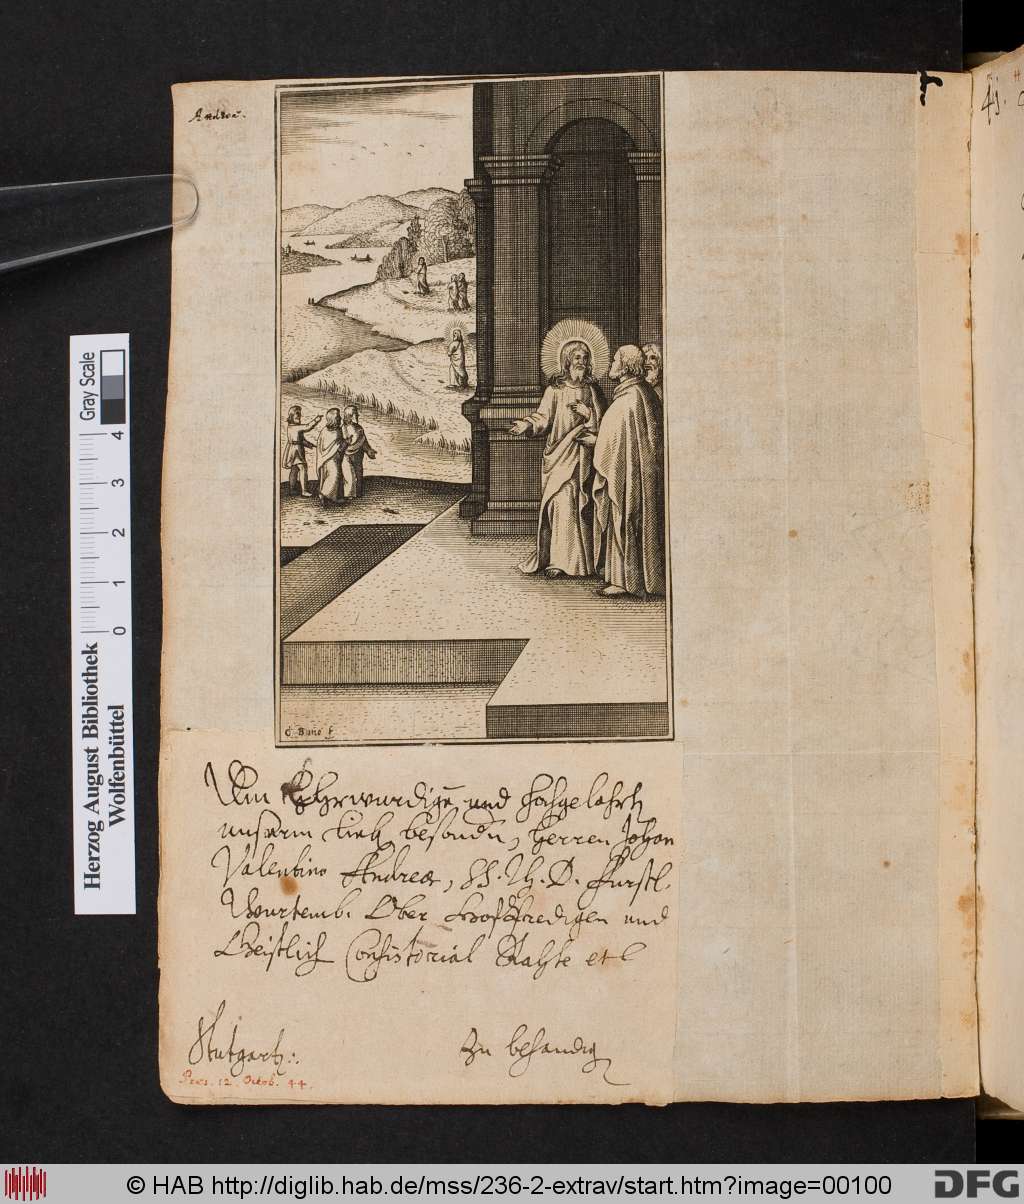 Andreae.
C. Buno f.
Dem Ehrwürdigen und Hochgelehrten
unserm lieben besondern, Herren Johan
Valentino Andreæ, SS. Th. D. Fürstl.
Würtemb. Ober Hofpredigen und
Geistlich Consistorial Rahte etc
Stutgart.
Zu behandig
Præs. 12. Octob. 44.
41.
Gray Scale
0 1 2 3 4
Herzog August Bibliothek
Wolfenbüttel
© HAB http://diglib.hab.de/mss/236-2-extrav/start.htm?image=00100
DFG